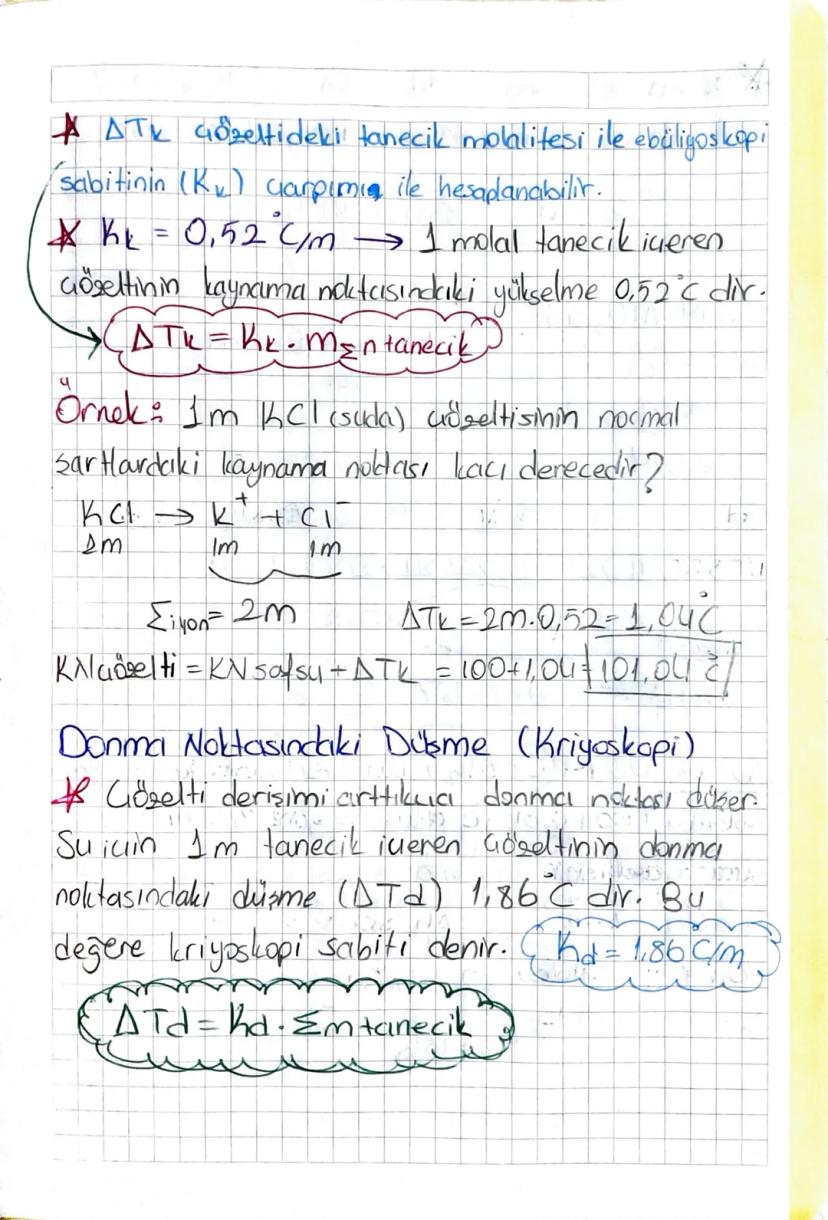 * ΔTk çözeltideki tanecik molalitesi ile ebüliyoskopi
sabitinin (Kk) çarpımı ile hesaplanabilir.
* Kk = 0,52°C/m → 1 molal tanecik içeren
çözeltinin kaynama noktasındaki yükselme 0,52°C dir.
ΔTk = Kk . mΣn tanecik
Örnek: 1m KCl (suda) çözeltisinin normal
şartlardaki kaynama noktası kaç derecedir?
KCl → K⁺ + Cl⁻
1m 1m 1m
Σiyon = 2m ΔTk = 2m.0,52 = 1,04°C
KNçözelti = KNsafsu + ΔTk = 100+1,04 = 101,04°C
Donma Noktasındaki Düşme (Kriyoskopi)
* Çözelti derişimi arttıkça donma noktası düşer.
Su için 1m tanecik içeren çözeltinin donma
noktasındaki düşme (ΔTd) 1,86°C dir. Bu
değere kriyoskopi sabiti denir. Kd = 1,86 C/m
ΔTd = Kd . Σm tanecik